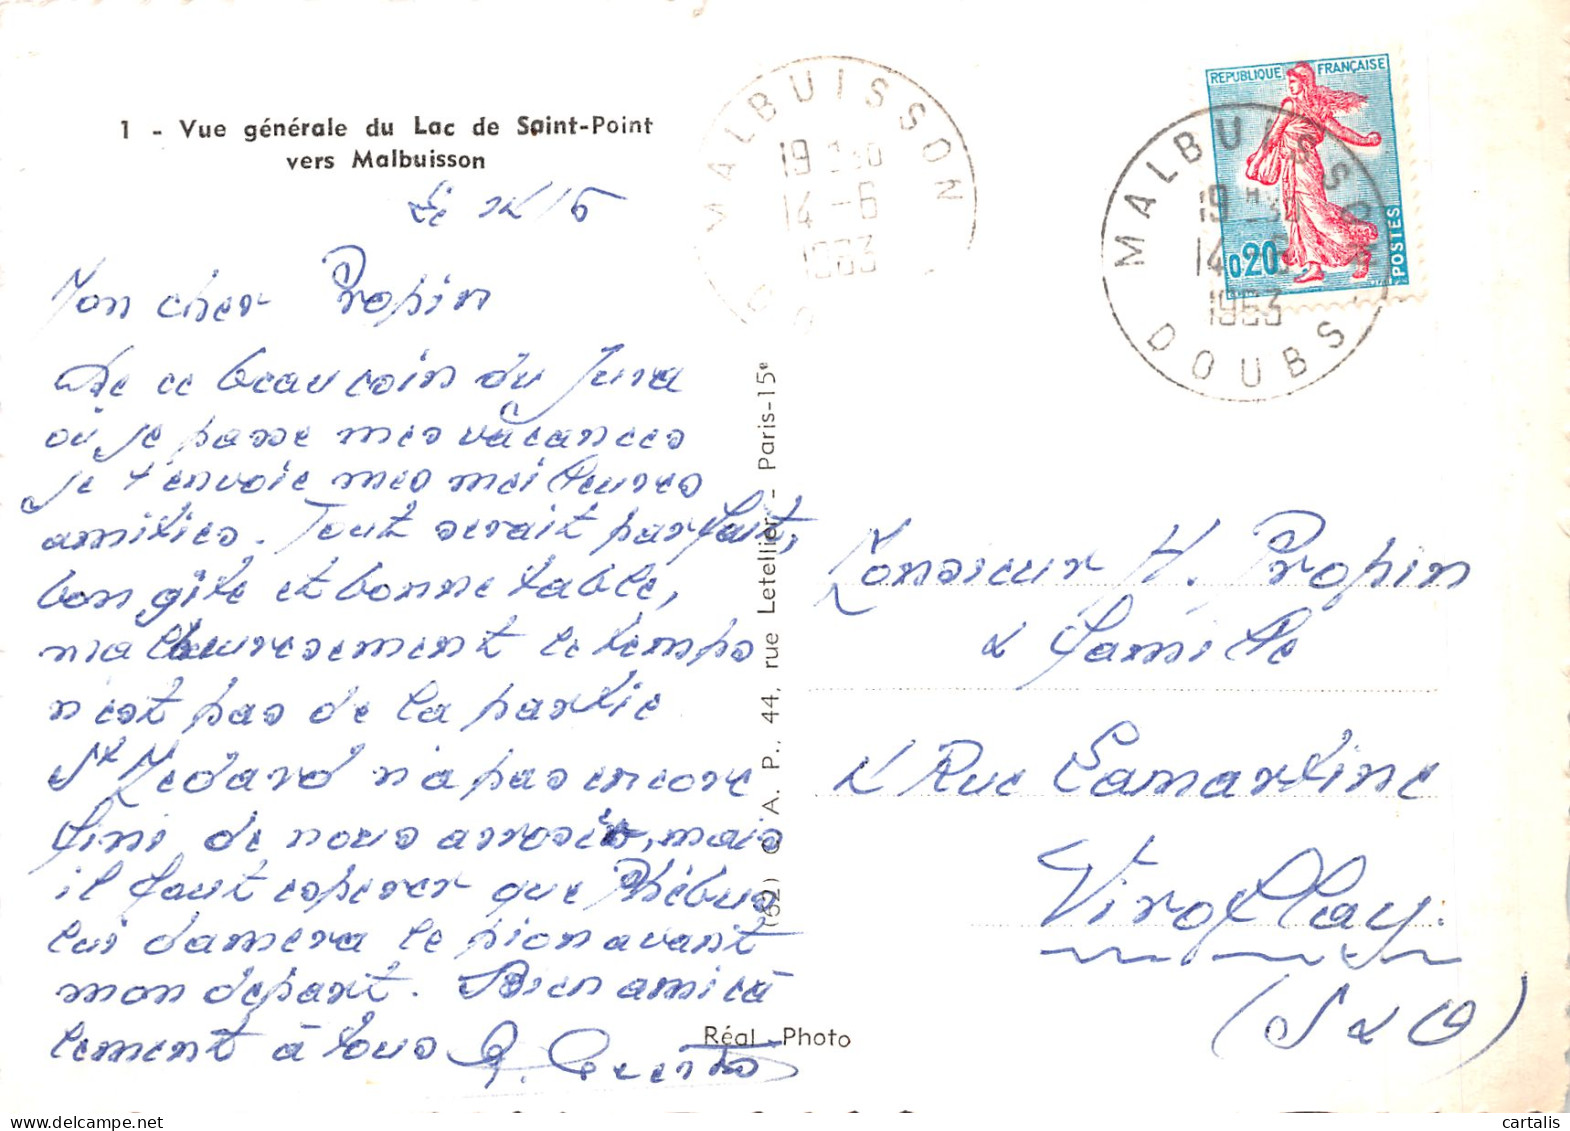 1 - Vue générale du Lac de Saint-Point
vers Malbuisson
Le 14/6
Mon cher Propin
De ce beau coin du Jura
où je passe mes vacances
je t'envoie mes meilleures
amitiés. Tout serait parfait,
bon gîte et bonne table,
malheureusement le temps
n'est pas de la partie
St Médard n'a pas encore
fini de nous arroser, mais
il faut espérer que Phébus
lui damera le pion avant
mon départ. Bien amica
lement à tous
MALBUISSON
19 30
14-6
1963
D
MALBUISSON
19H30
14-6
1963
DOUBS
REPUBLIQUE FRANÇAISE
0,20
POSTES
(62) C. A. P., 44, rue Letellier - Paris-15e
Réal-Photo
Monsieur H. Propin
& famille
2 Rue Lamartine
Viroflay.
(S & O)
cartalis